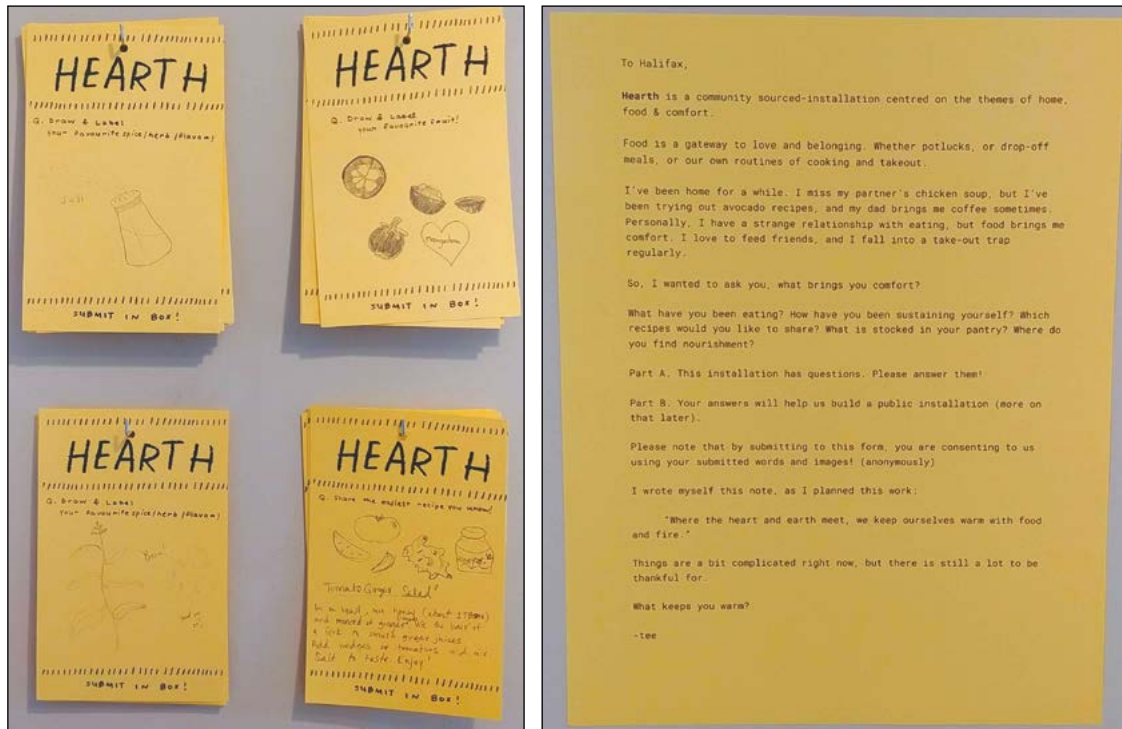 HEARTH
Q. Draw & Label
your favourite spice/herb/flavour!
Salt
SUBMIT IN BOX!
HEARTH
Q. Draw & Label
your favourite fruit!
SUBMIT IN BOX!
HEARTH
Q. Draw & Label
your favourite spice/herb/flavour!
SUBMIT IN BOX!
HEARTH
Q. Share the easiest recipe you know!
Tomato Ginger Salad
In a bowl, mix honey (about 1 TBSP)
and minced ginger. Use the back of
a fork to smash ginger juices
Add wedges of tomatoes and mix.
Salt to taste. Enjoy!
SUBMIT IN BOX!
To Halifax,
Hearth is a community sourced-installation centred on the themes of home,
food & comfort.
Food is a gateway to love and belonging. Whether potlucks, or drop-off
meals, or our own routines of cooking and takeout.
I've been home for a while. I miss my partner's chicken soup, but I've
been trying out avocado recipes, and my dad brings me coffee sometimes.
Personally, I have a strange relationship with eating, but food brings me
comfort. I love to feed friends, and I fall into a take-out trap
regularly.
So, I wanted to ask you, what brings you comfort?
What have you been eating? How have you been sustaining yourself? Which
recipes would you like to share? What is stocked in your pantry? Where do
you find nourishment?
Part A. This installation has questions. Please answer them!
Part B. Your answers will help us build a public installation (more on
that later).
Please note that by submitting to this form, you are consenting to us
using your submitted words and images! (anonymously)
I wrote myself this note, as I planned this work:
"Where the heart and earth meet, we keep ourselves warm with food
and fire."
Things are a bit complicated right now, but there is still a lot to be
thankful for.
What keeps you warm?
-tee